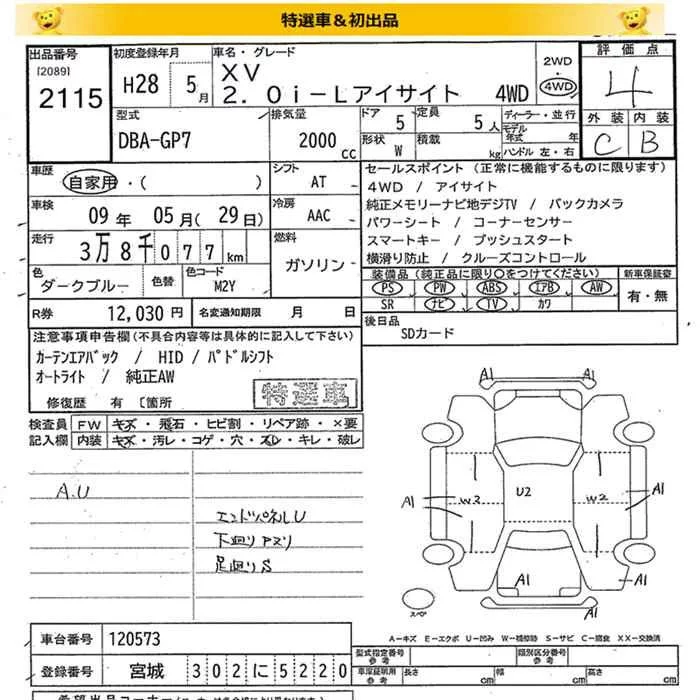 特選車＆初出品
出品番号
[2089]
2115
初度登録年月
H28 5月
車名・グレード
XV
2.0i-Lアイサイト 4WD
2WD
・
4WD
評価点
4
外装 内装
C B
型式
DBA-GP7
排気量
2000 cc
ドア 5
定員 5人
形状 W
積載 kg
ディーラー・並行
モデル年式 年
ハンドル 左・右
車歴
自家用・( )
シフト
AT
車検
09年 05月(29日)
冷房
AAC
走行
3万8千077km
燃料
ガソリン
色
ダークブルー
色替
色コード
M2Y
R券 12,030円
名変通知期限 月 日
セールスポイント (正常に機能するものに限ります)
4WD / アイサイト
純正メモリーナビ地デジTV / バックカメラ
パワーシート / コーナーセンサー
スマートキー / プッシュスタート
横滑り防止 / クルーズコントロール
装備品(純正品に限り○をつけてください)
新車保証書
PS PW ABS エアB AW
SR ナビ TV カワ
有・無
後日品
SDカード
注意事項申告欄(不具合内容等は具体的に記入して下さい)
カーテンエアバック / HID / パドルシフト
オートライト / 純正AW
特選車
修復歴 有 〔箇所
検査員 記入欄
FW キズ・飛石・ヒビ割・リペア跡・×要
内装 キズ・汚レ・コゲ・穴・スレ・キレ・破レ
A.U
エンドパネルU
下廻りアスリ
足廻りS
A1 A1
A1 W2 U2 W2 A1
A1 A1
スペア
A1
A−キズ E−エクボ U−凹み W−補修跡 S−サビ C−腐食 XX−交換済
車台番号 120573
登録番号 宮城 302に5220
型式指定番号 参考
類別区分番号 参考
車庫証明用 参考 長さ cm 幅 cm 高さ cm